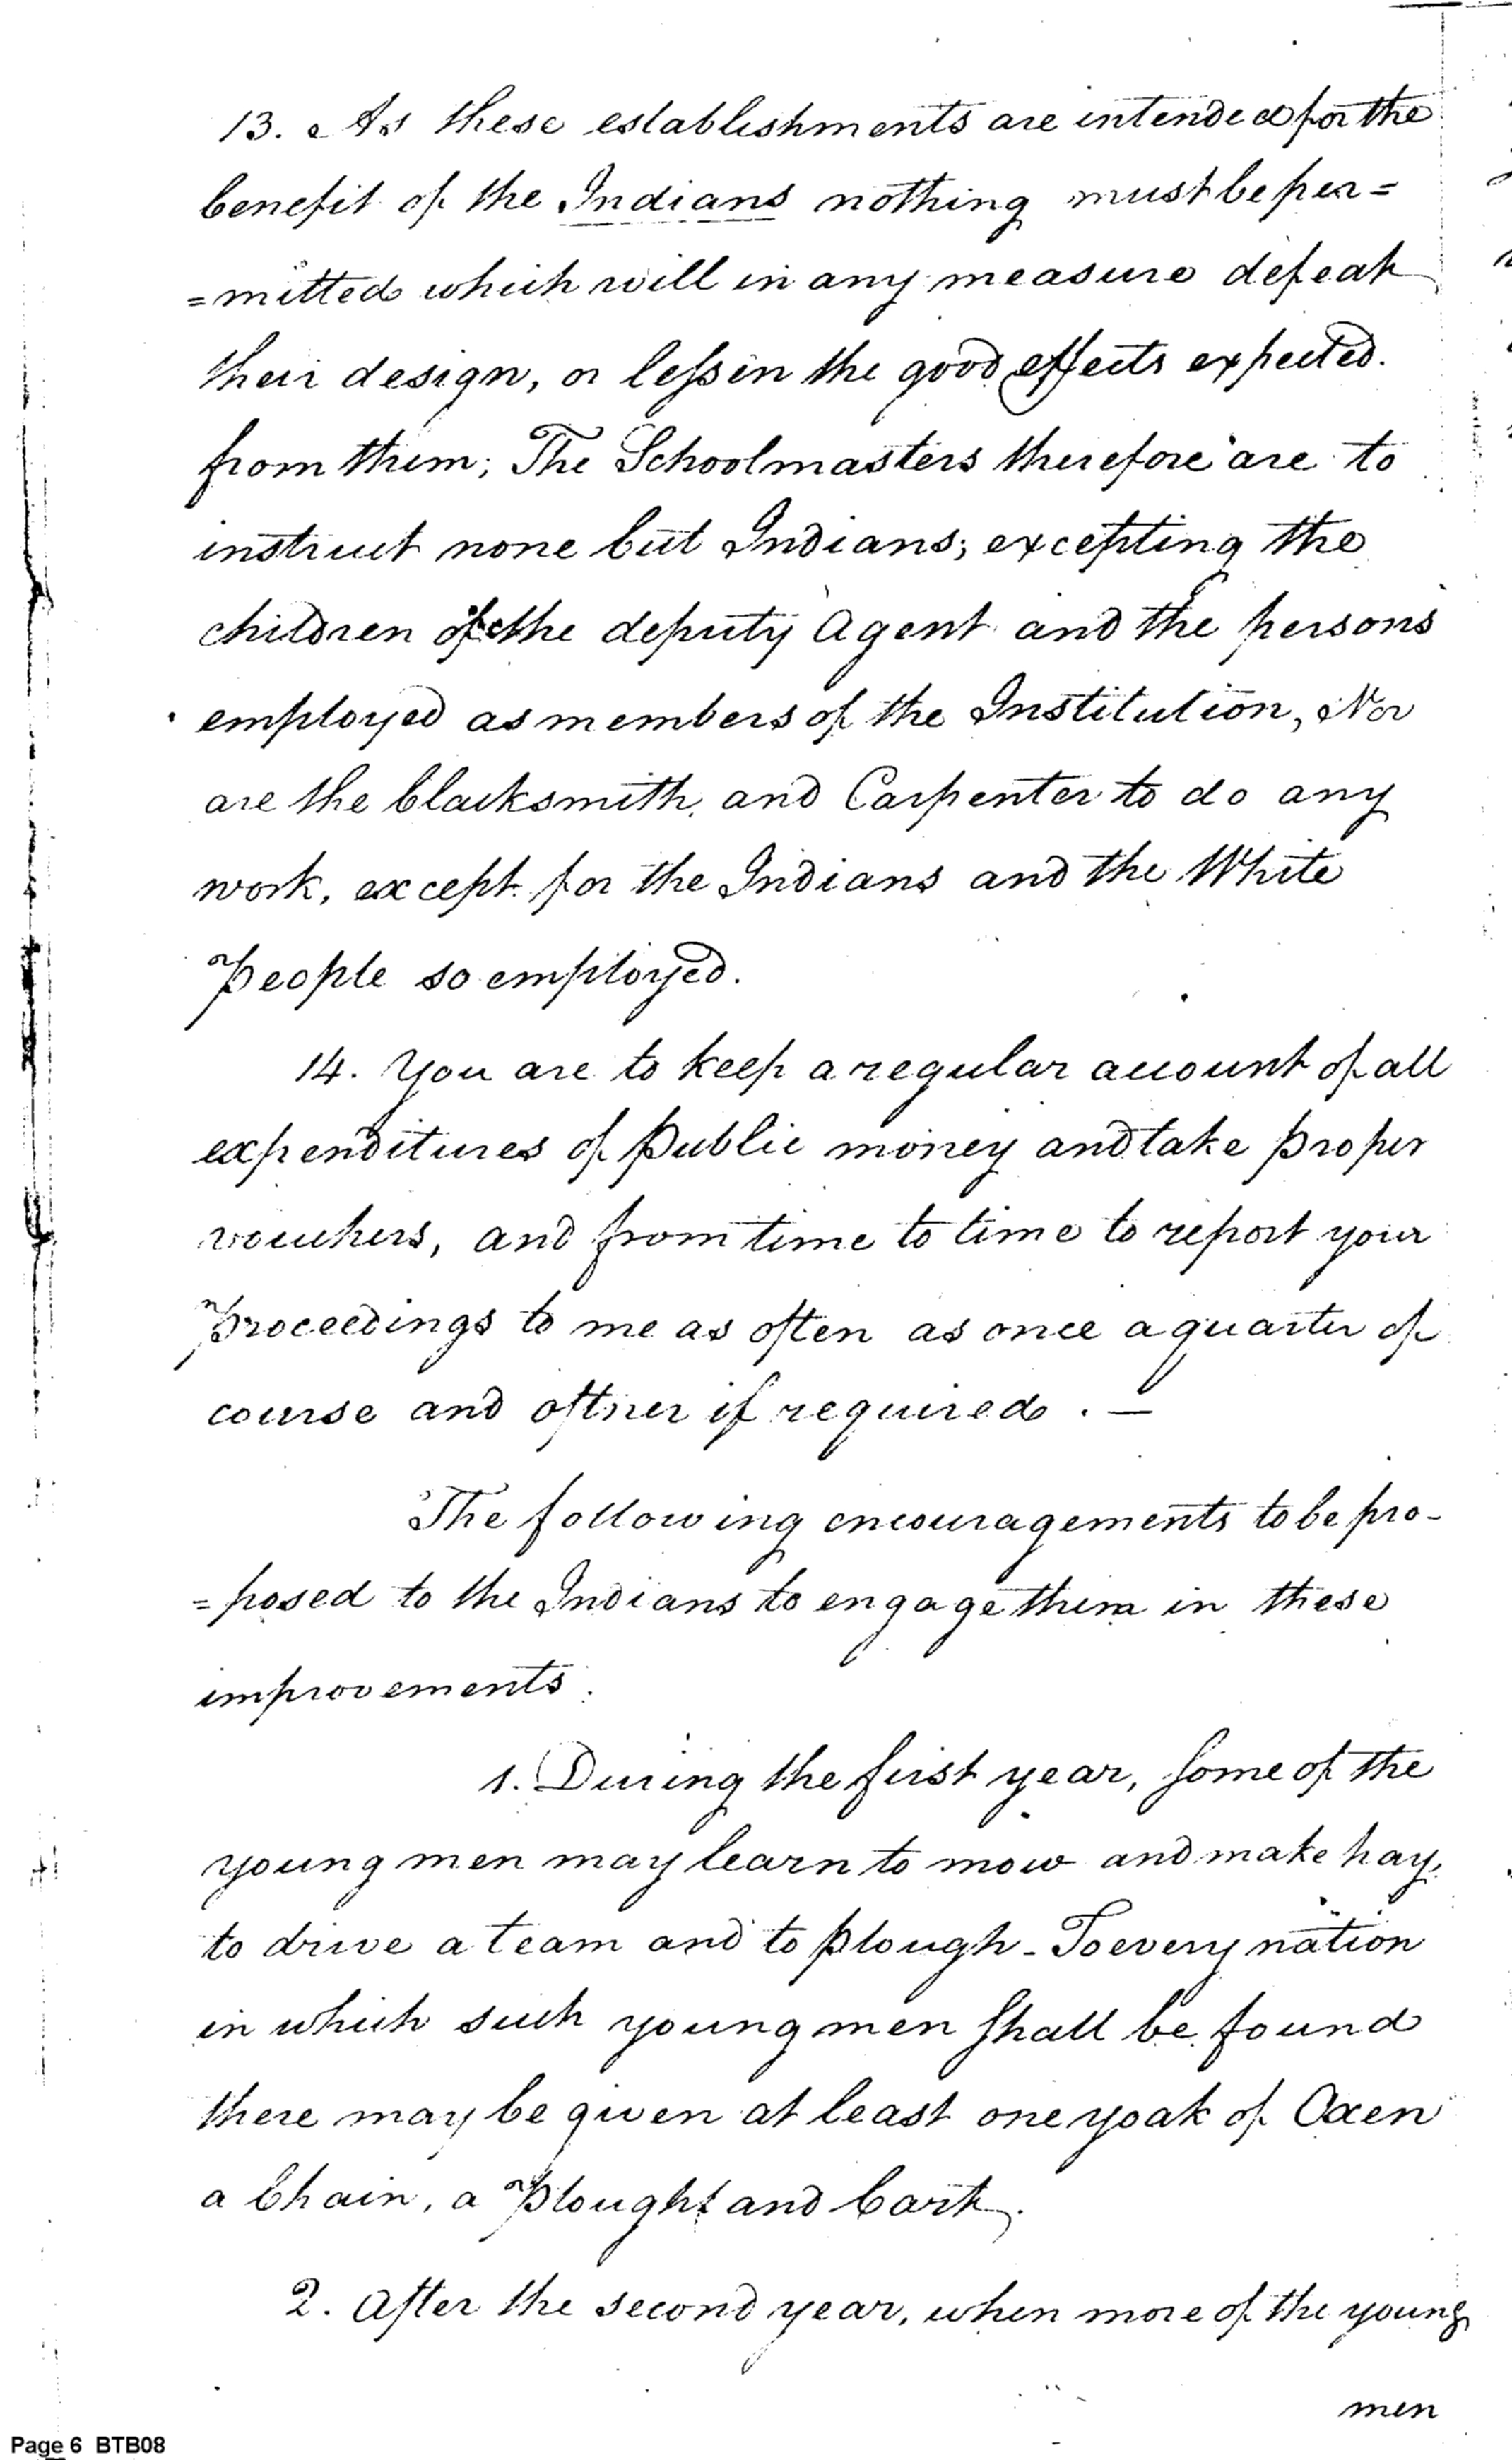 13. As these establishments are intended for the
benefit of the Indians nothing must be per=
=mitted which will in any measure defeat
their design, or lessen the good effects expected.
from them; The Schoolmasters therefore are to
instruct none but Indians; excepting the
children of the deputy Agent and the persons
employed as members of the Institution, Nor
are the blacksmith, and Carpenter to do any
work, except for the Indians and the White
People so employed.
14. You are to keep a regular account of all
expenditures of Public money and take proper
vouchers, and from time to time to report your
Proceedings to me as often as once a quarter of
course and oftner if required. —
The following encouragements to be pro-
=posed to the Indians to engage them in these
improvements.
1. During the first year, some of the
young men may learn to mow and make hay,
to drive a team and to plough - To every nation
in which such young men shall be found
there may be given at least one yoak of Oxen
a Chain, a Plough and Cart.
2. After the second year, when more of the young
men
Page 6 BTB08